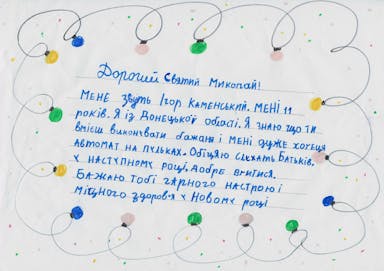 Дорогий Святий Миколай!
МЕНЕ звуть Ігор Каменський. МЕНІ 11
років. Я із Донецької області. Я знаю що ти
вмієш виконувати бажання і мені дуже хочеця
автомат на пульках. Обіцяю слухать Батьків.
У наступному році, добре вчитися.
Бажаю тобі гарного настрою і
міцного здоров-я у Новому році